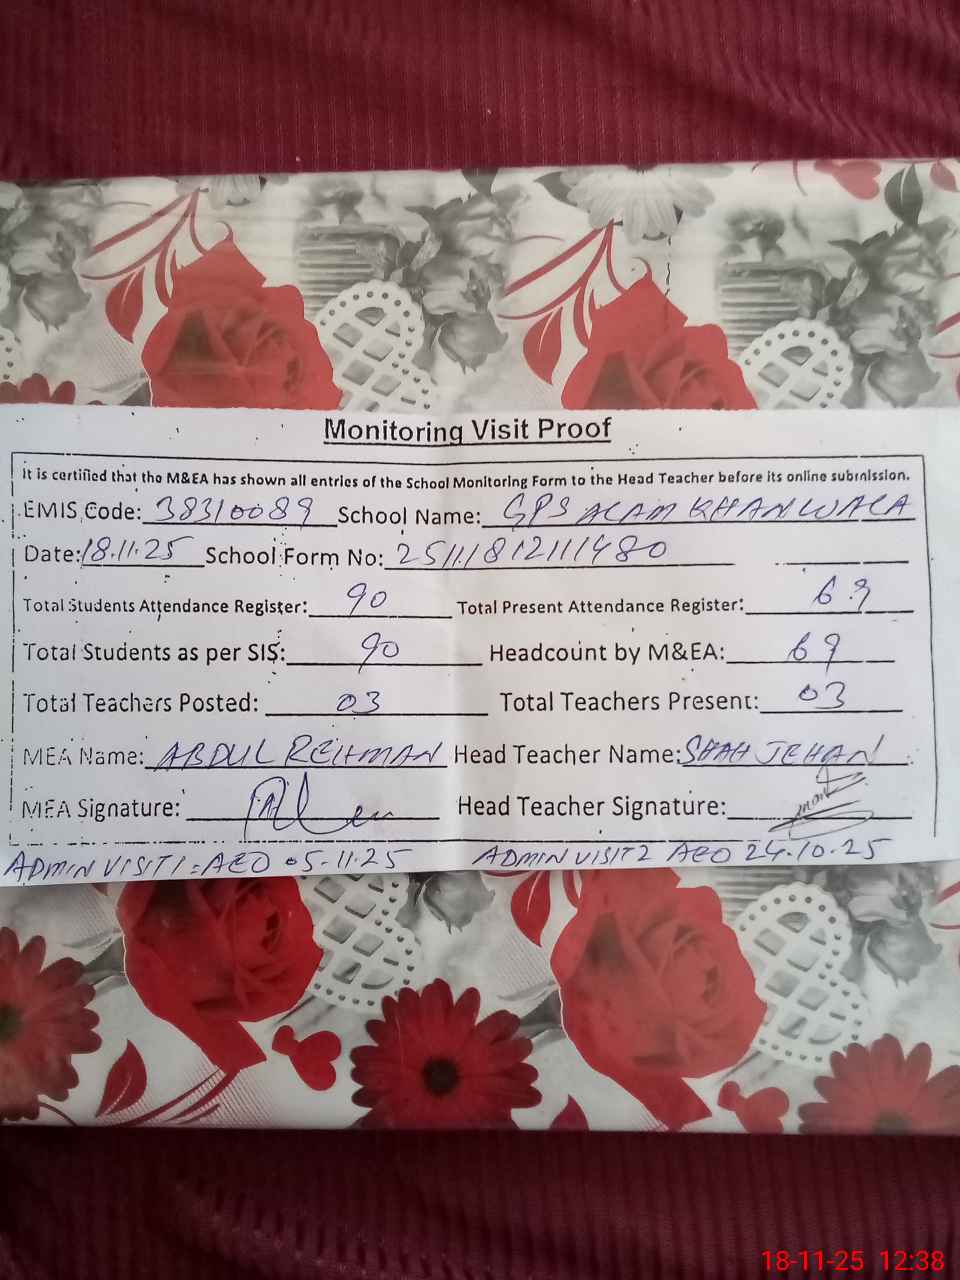 Monitoring Visit Proof
It is certified that the M&EA has shown all entries of the School Monitoring Form to the Head Teacher before its online submission.
EMIS Code: 38310089 School Name: GPS ALAM KHANWALA
Date: 18.11.25 School Form No: 251118121111480
Total Students Attendance Register: 90 Total Present Attendance Register: 69
Total Students as per SIS: 90 Headcount by M&EA: 69
Total Teachers Posted: 03 Total Teachers Present: 03
MEA Name: ABDUL REHMAN Head Teacher Name: SHAH JEHAN
MEA Signature: Head Teacher Signature:
ADMIN VISIT 1: AEO 05.11.25 ADMIN VISIT 2 AEO 24.10.25
18-11-25 12:38